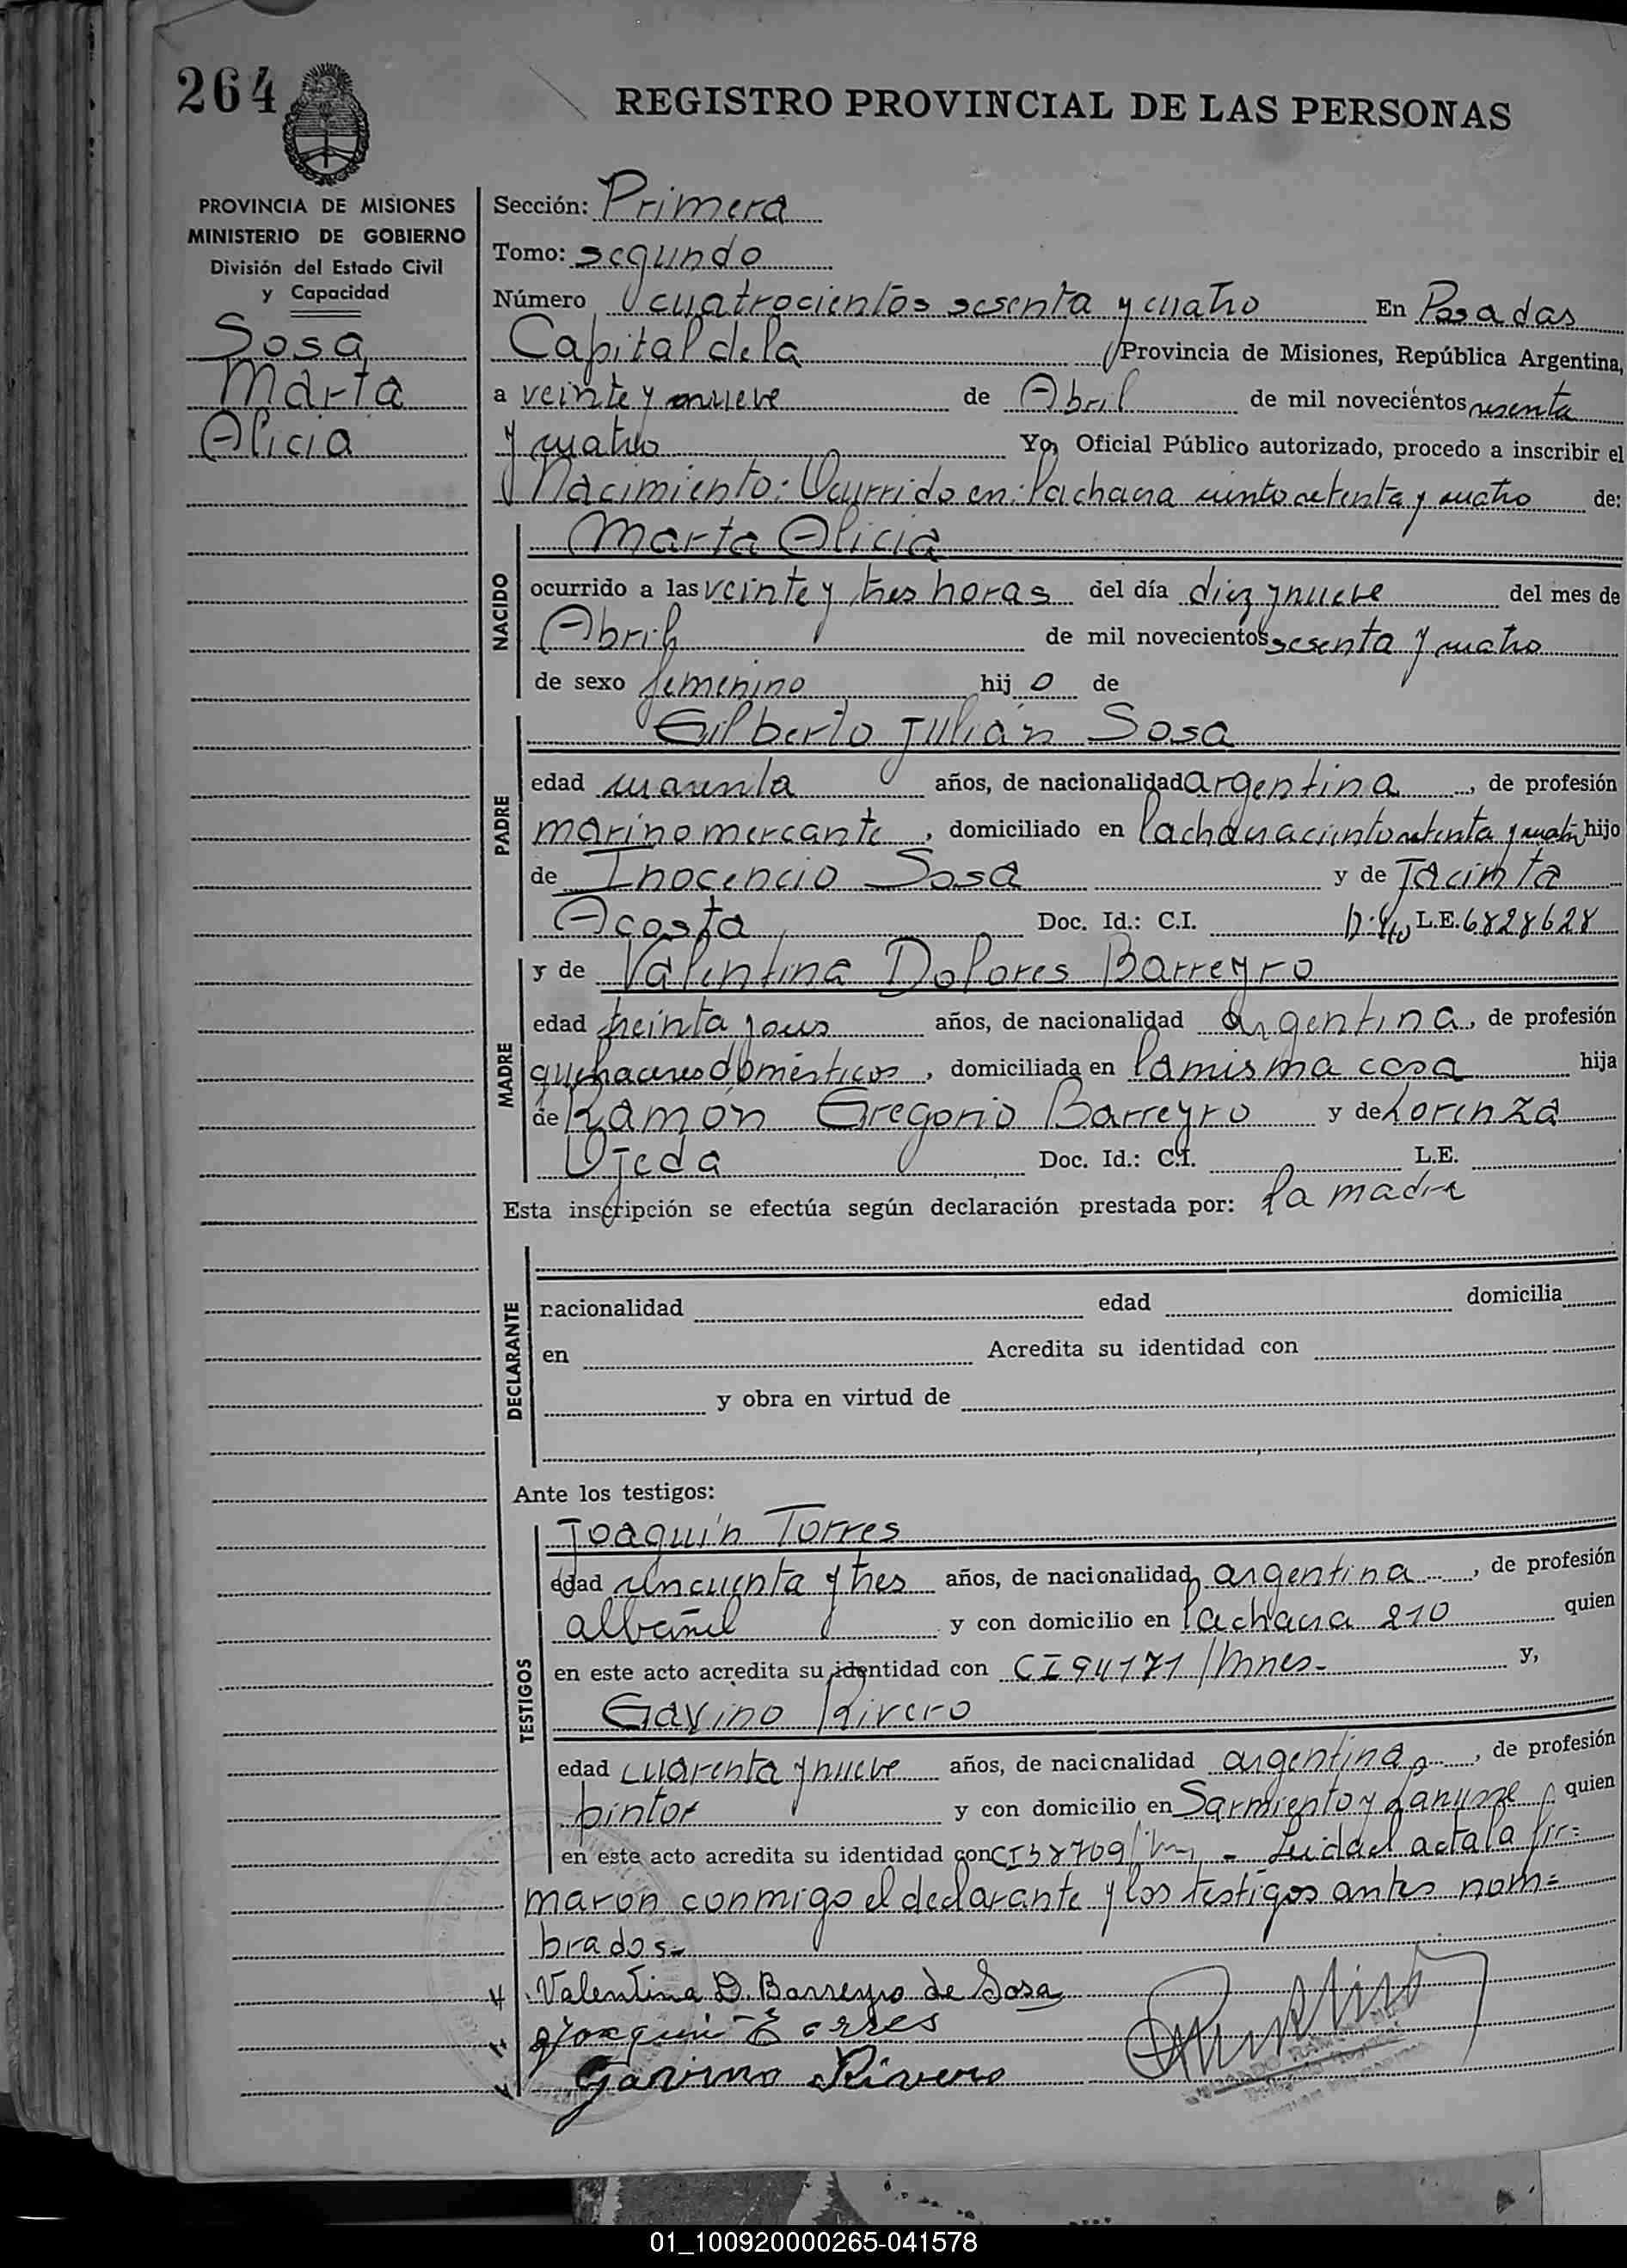 264
REGISTRO PROVINCIAL DE LAS PERSONAS
PROVINCIA DE MISIONES
MINISTERIO DE GOBIERNO
División del Estado Civil
y Capacidad
Sosa
Marta
Alicia
Sección: Primera
Tomo: segundo
Número cuatrocientos sesenta y cuatro En Posadas
Capital de la Provincia de Misiones, República Argentina,
a veinte y nueve de Abril de mil novecientos sesenta
y cuatro Yo, Oficial Público autorizado, procedo a inscribir el
Nacimiento: Ocurrido en: Lachara ciento setenta y cuatro de:
NACIDO
Marta Alicia
ocurrido a las veinte y tres horas del día diez y nueve del mes de
Abril de mil novecientos sesenta y cuatro
de sexo femenino hij o de
PADRE
Gilberto Julián Sosa
edad cuarenta años, de nacionalidad argentina, de profesión
marino mercante, domiciliado en Lachara ciento setenta y cuatro hijo
de Inocencio Sosa y de Jacinta
Acosta Doc. Id.: C.I. L.E. 6828628
MADRE
y de Valentina Dolores Barreyro
edad treinta y años, de nacionalidad argentina, de profesión
quehaceres domésticos, domiciliada en la misma casa hija
de Ramón Gregorio Barreyro y de Lorenza
Ojeda Doc. Id.: C.I. L.E.
Esta inscripción se efectúa según declaración prestada por: la madre
DECLARANTE
nacionalidad edad domicilia
en Acredita su identidad con
y obra en virtud de
Ante los testigos:
TESTIGOS
Joaquín Torres
edad cincuenta y tres años, de nacionalidad argentina, de profesión
albañil y con domicilio en Lachara 210 quien
en este acto acredita su identidad con CI 94171/Mnes.- y,
Gavino Rivero
edad cuarenta y nueve años, de nacionalidad argentina, de profesión
pintor y con domicilio en Sarmiento y Lanusse quien
en este acto acredita su identidad con CI 38709/ - Leida el acta la fir=
maron conmigo el declarante y los testigos antes nom=
brados.-
Valentina D. Barreyro de Sosa
Joaquin Torres
Gavino Rivero
01_100920000265-041578